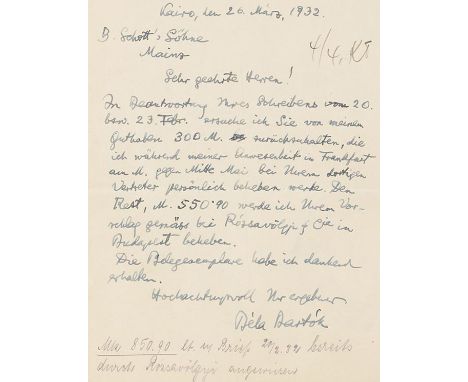 Kairo, den 26. März, 1932.
B. Schott's Söhne
Mainz
4/4. 
Sehr geehrte Herren!
In Beantwortung Ihres Schreibens vom 20.
bzw. 23. Febr. ersuche ich Sie von meinem
Guthaben 300 M. zurückzuhalten, die
ich während meiner Anwesenheit in Frankfurt
am M. gegen Mitte Mai bei Ihrem dortigen
Vertreter persönlich beheben werde. Den
Rest, M. 550·90 werde ich Ihrem Vor-
schlag gemäss bei Rózsavölgyi & Cie in
Budapest beheben.
Die Belegexemplare habe ich dankend
erhalten.
Hochachtungsvoll Ihr ergebener
Béla Bartók
Mk 850.90 lt. Brief 20/2. 32 bereits
durch Rozsavölgyi angewiesen